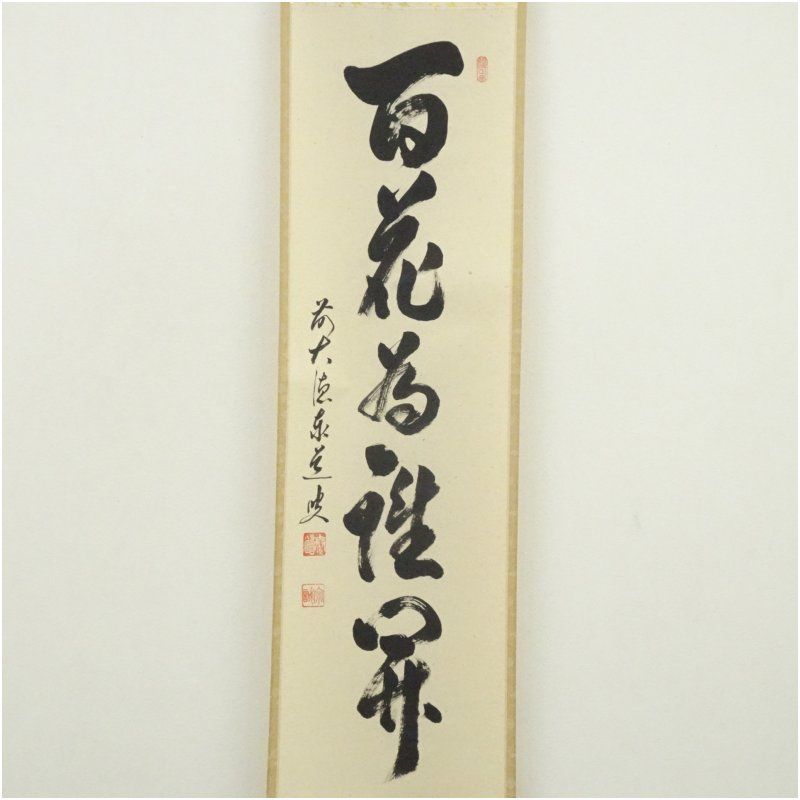 百花為誰開
前大徳泰道叟